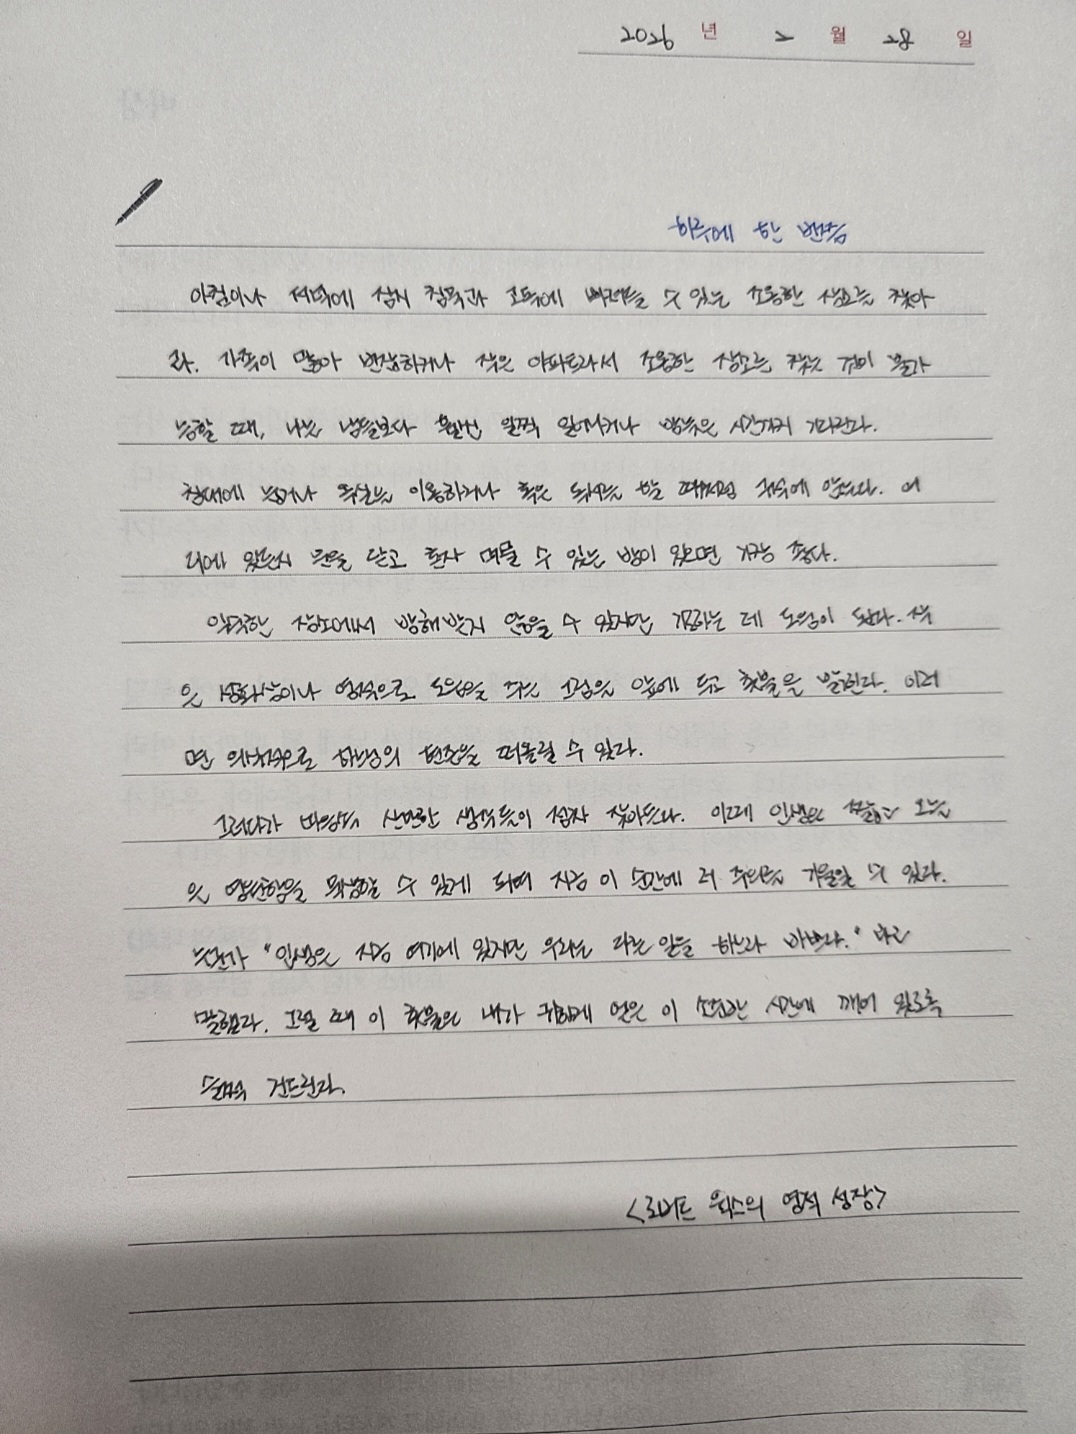 2026 년 2 월 28 일
하루에 한 번쯤
아침이나 저녁에 잠시 침묵과 고독에 빠져들 수 있는 조용한 장소를 찾아
라. 가족이 많아 번잡하거나 작은 아파트라서 조용한 장소를 찾는 것이 불가
능할 때, 나는 남들보다 훨씬 일찍 일어나거나 밤늦은 시간까지 기다린다.
침대에 눕거나 거실을 이용하거나 혹은 독서를 할 때처럼 의자에 앉는다. 어
디에 있든지 문을 닫고 혼자 머물 수 있는 방이 있으면 가장 좋다.
아늑한 장소에서 방해받지 않을 수 있지만 집중하는 데 도움이 된다. 작
은 성화상이나 영적으로 도움을 주는 그림을 앞에 두고 촛불을 밝힌다. 이러
면 의식적으로 하느님의 현존을 떠올릴 수 있다.
그러다가 마음의 산만한 생각들이 점차 잦아든다. 이때 인생의
을 영원함을 묵상할 수 있게 되며 지금 이 순간에 더 주의를 기울일 수 있다.
누군가 "인생은 지금 여기에 있지만 우리는 다른 일을 하느라 바쁘다." 라고
말했다. 그럴 때 이 촛불은 내가 귀하게 얻은 이 소중한 시간에 깨어 있도록
건드린다.
<로버트 윅스의 영적 성장>